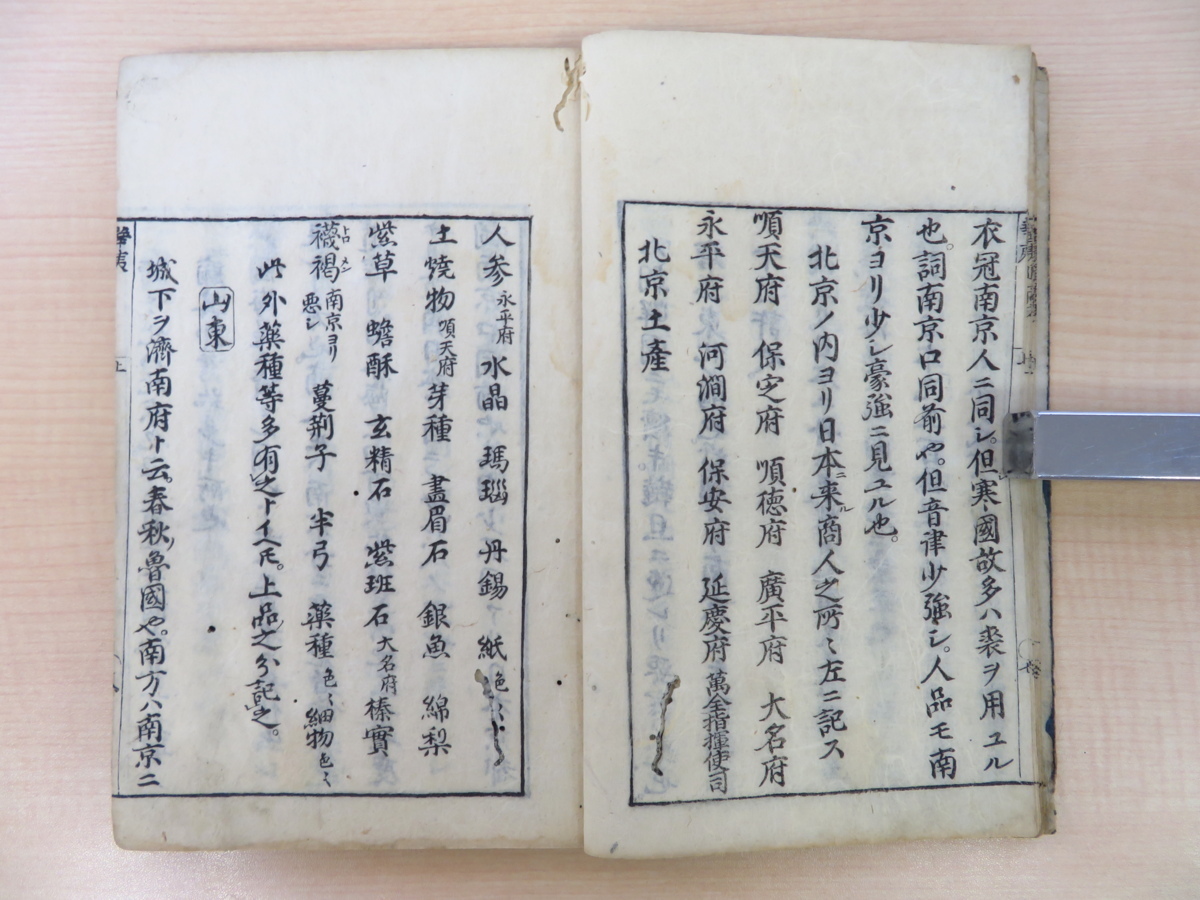 衣冠南京人ニ同シ。但寒國故多ハ裘ヲ用ユル
也。詞南京口同前や。但音律少強シ。人品モ南
京ヨリ少シ豪強ニ見ユル也。
北京ノ内ヨリ日本ニ来ル商人之所々左ニ記ス
順天府 保定府 順徳府 廣平府 大名府
永平府 河澗府 保安府 延慶府 萬全指揮使司
北京土産
人参 永平府 水晶 瑪瑙 丹錫 紙 色々
土燒物 順天府 芽種 畫眉石 銀魚 綿梨
紫草 蟾酥 玄精石 紫班石 大名府 榛實
襪褐 トロメン 南京ヨリ悪シ 蔓荊子 半弓 薬種 色々 細物 色々
此外薬種等多有之トイヘ𪜈。上品之分記之。
山東
城下ヲ濟南府ト云。春秋ノ魯國や。南方ハ南京ニ